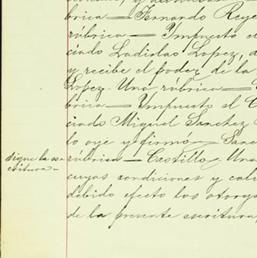 brica — Fernando Reye
rúbrica — Impuesto el
ciado Ladislao Lopez, a
y recibe el poder de la
Lopez. Una rúbrica —
brica — Impuesto el C
ciado Miguel Sanchez
lo oye y firmó — Sanc
rúbrica — Castillo, Una
sigue la es-
critura —
cuyas condiciones y cali
debido efecto los otorga
de la presente escritura,